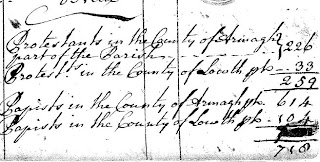 Protestants in the County of Armagh
part of the Parish 226
Protest.ts in the County of Louth pt. 33
259
Papists in the County of Armagh pt. 614
Papists in the County of Louth pt. 104
718